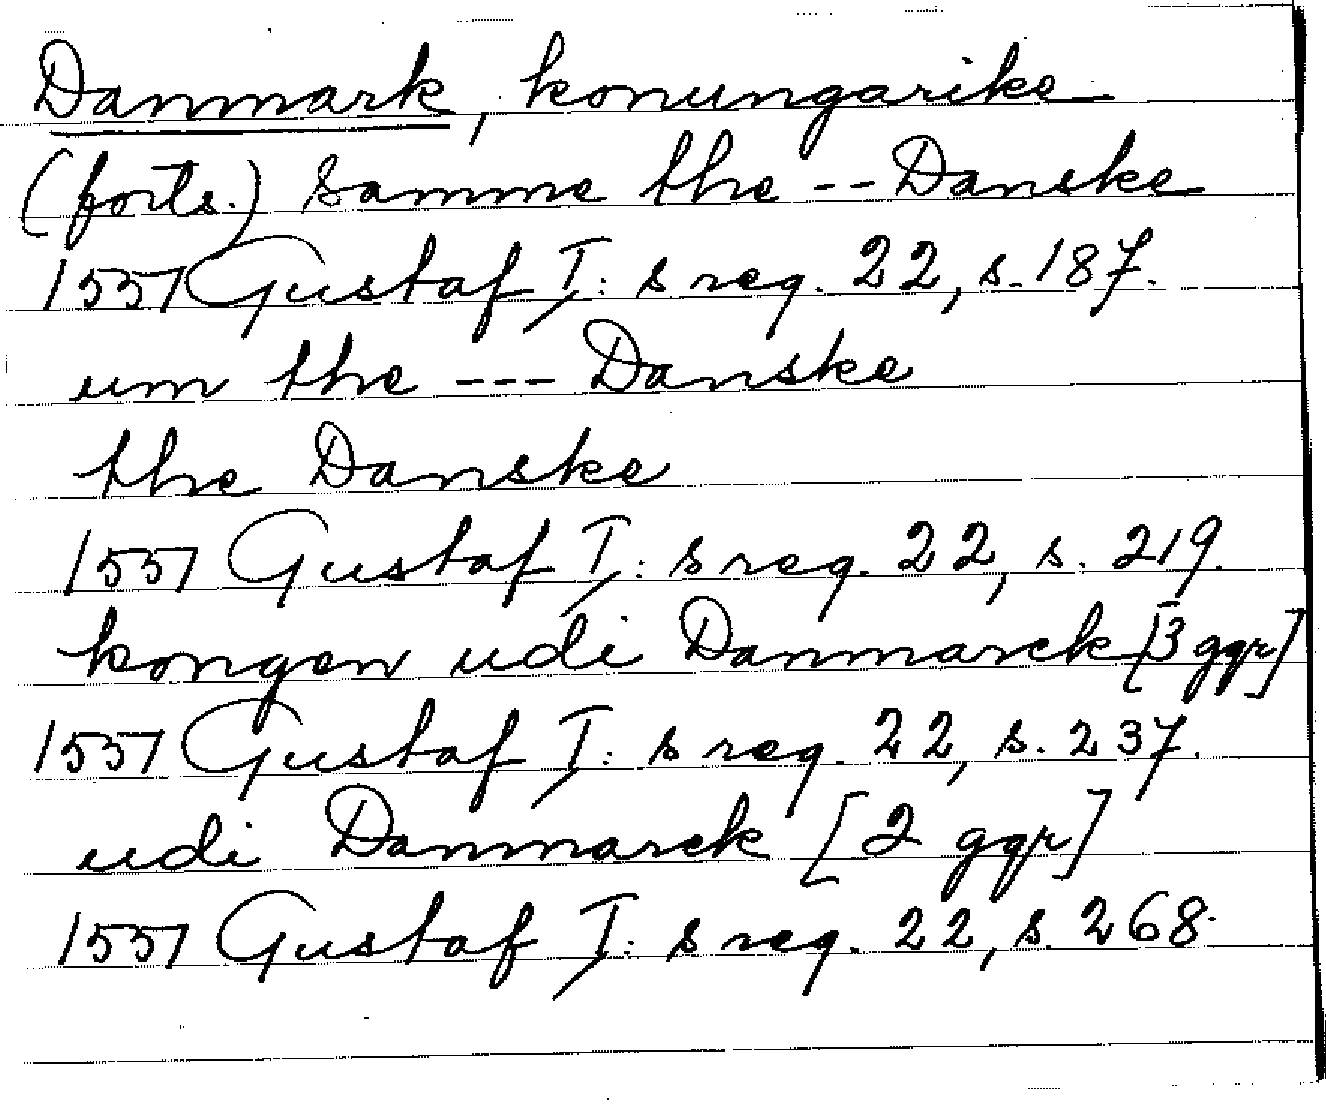 Danmark, konungarike
(forts.) Samme the -- Danske
1551 Gustaf I:s reg. 22, s. 187.
um the --- Danske
the Danske
1551 Gustaf I:s reg. 22, s. 219.
kongen udi Danmarck [3 ggr]
1551 Gustaf I:s reg. 22, s. 237.
udi Danmarck [2 ggr]
1551 Gustaf I:s reg. 22, s. 268.